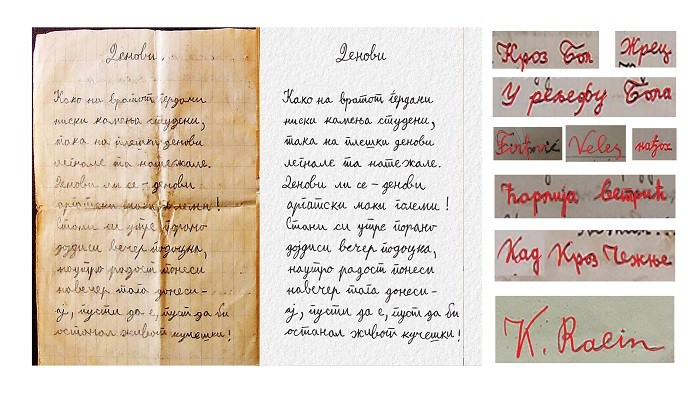 Денови.
Како на вратот ѓердани
ниски камења студени,
така на плешки денови
легнале та натежале.
Денови ли се – денови
аргатски маки големи!
Стани си утре порано
дојдиси вечер подоцна,
наутро радост понеси
навечер тага донеси –
ај, пусти да е, пуст да би
останал живот кучешки!
Денови
Како на вратот ѓердани
ниски камења студени,
така на плешки денови
легнале та натежале.
Денови ли се – денови
аргатски маки големи!
Стани си утре порано
дојдиси вечер подоцна,
наутро радост понеси
навечер тага донеси –
ај, пусти да е, пуст да би
останал живот кучешки!
Кроз Бол
Жрец
У рељефу Бола
Veles
нађох
Ћарлија ветрић
Кад Кроз Чежње
K. Racin